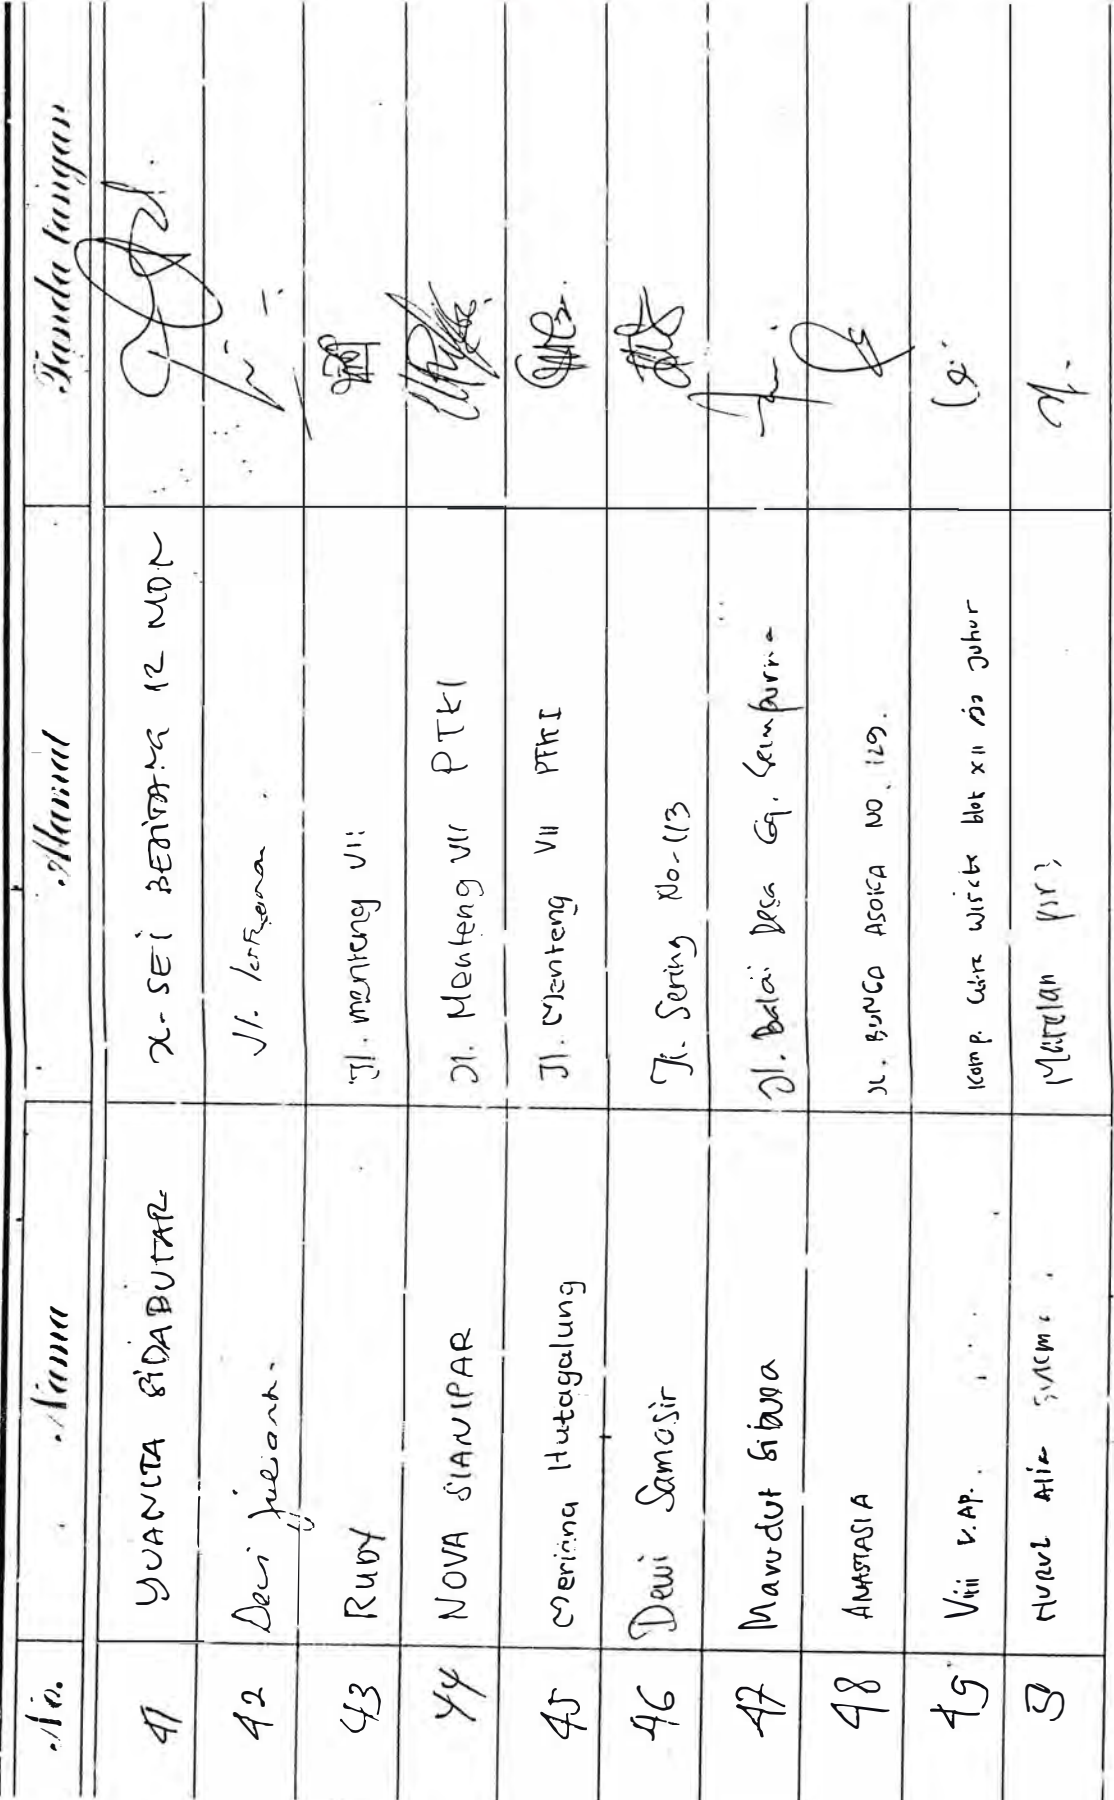 No. Nama Alamat Tanda tangan
41 YUANITA SIDABUTAR Jl. SEI BERTAMA 12 MDN
42 Dewi Juliana. Jl.
43 RUBY Jl. menteng VII
44 NOVA SIANIPAR Jl. Menteng VII PTKI
45 Merinna Hutagalung Jl. Menteng VII PTKI
46 Dewi Samosir Jl. Sering No. 113
47 Marudut Jl. Balai Desa Gg. Sempurna
48 ANASTASIA Jl. BUNGA ASOKA NO. 129.
49 V.AP. Komp. Citra Wisata blok XII Johor
50 NURUL Marelan